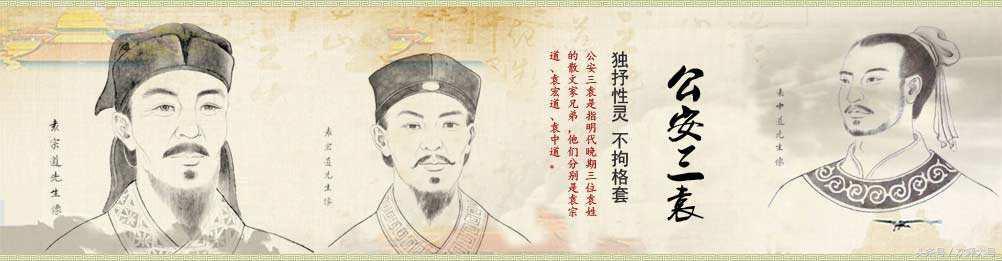 袁宗道先生像
袁宏道先生像
公安三袁是指明代晚期三位袁姓
的散文家兄弟，他们分别是袁宗
道、袁宏道、袁中道。
独抒性灵 不拘格套
公安三袁
袁中道先生像